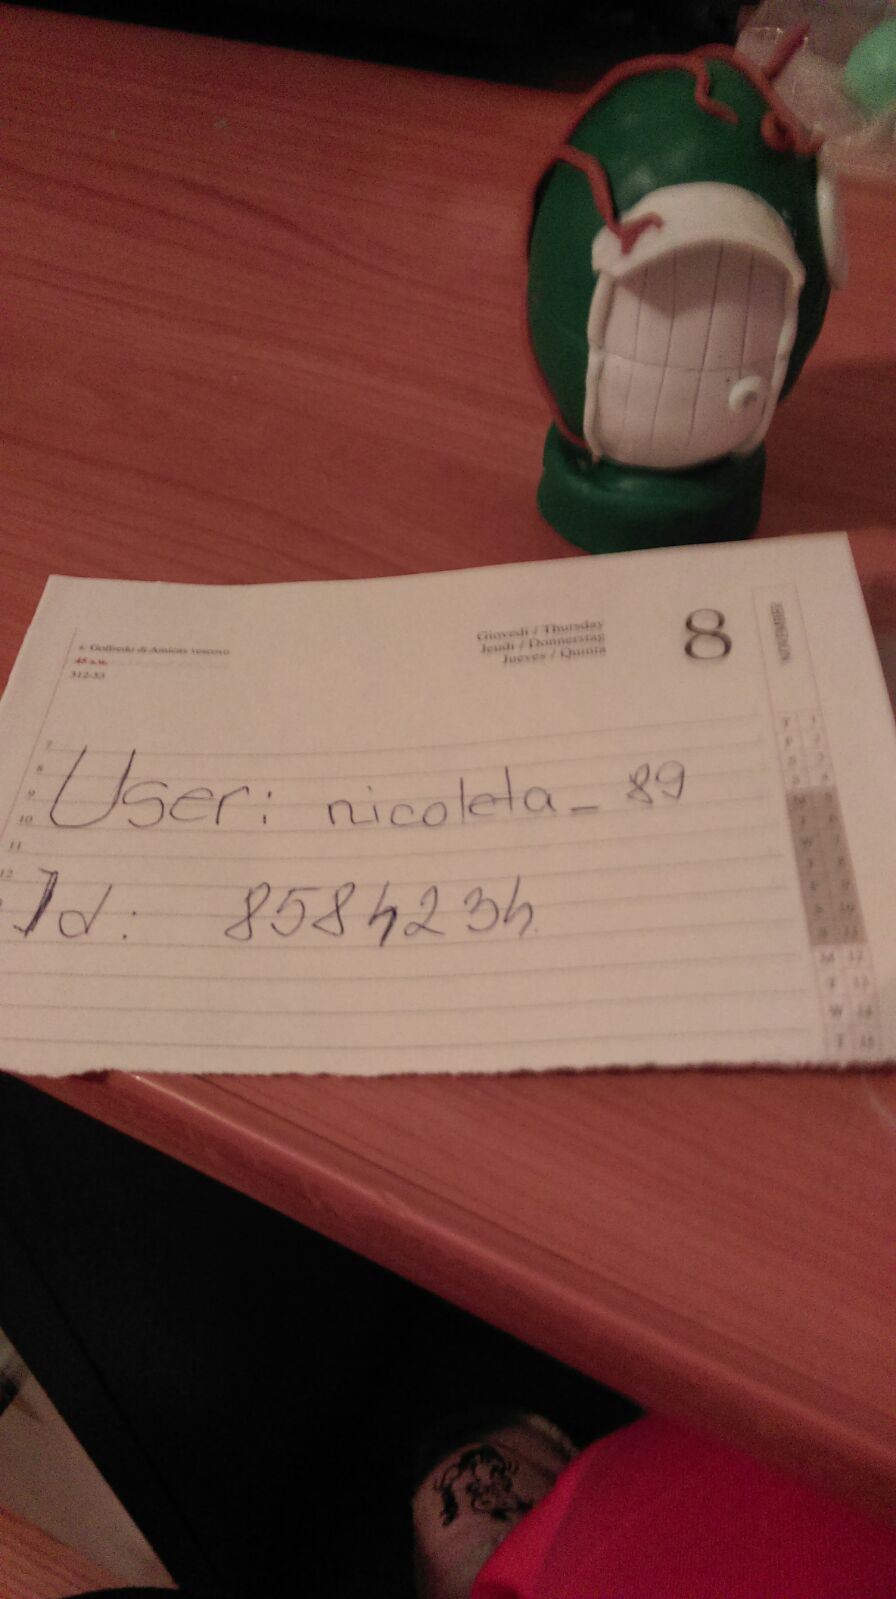 s. Goffredo di Amiens vescovo
45 s.w.
312-53
Giovedì / Thursday
Jeudi / Donnerstag
Jueves / Quinta
8
NOVEMBER
7
8
9
10
11
12
User: nicoleta_89
Id: 8584234
F 1
F 2
S 3
S 4
M 5
T 6
W 7
T 8
F 9
S 10
S 11
M 12
T 13
W 14
T 15